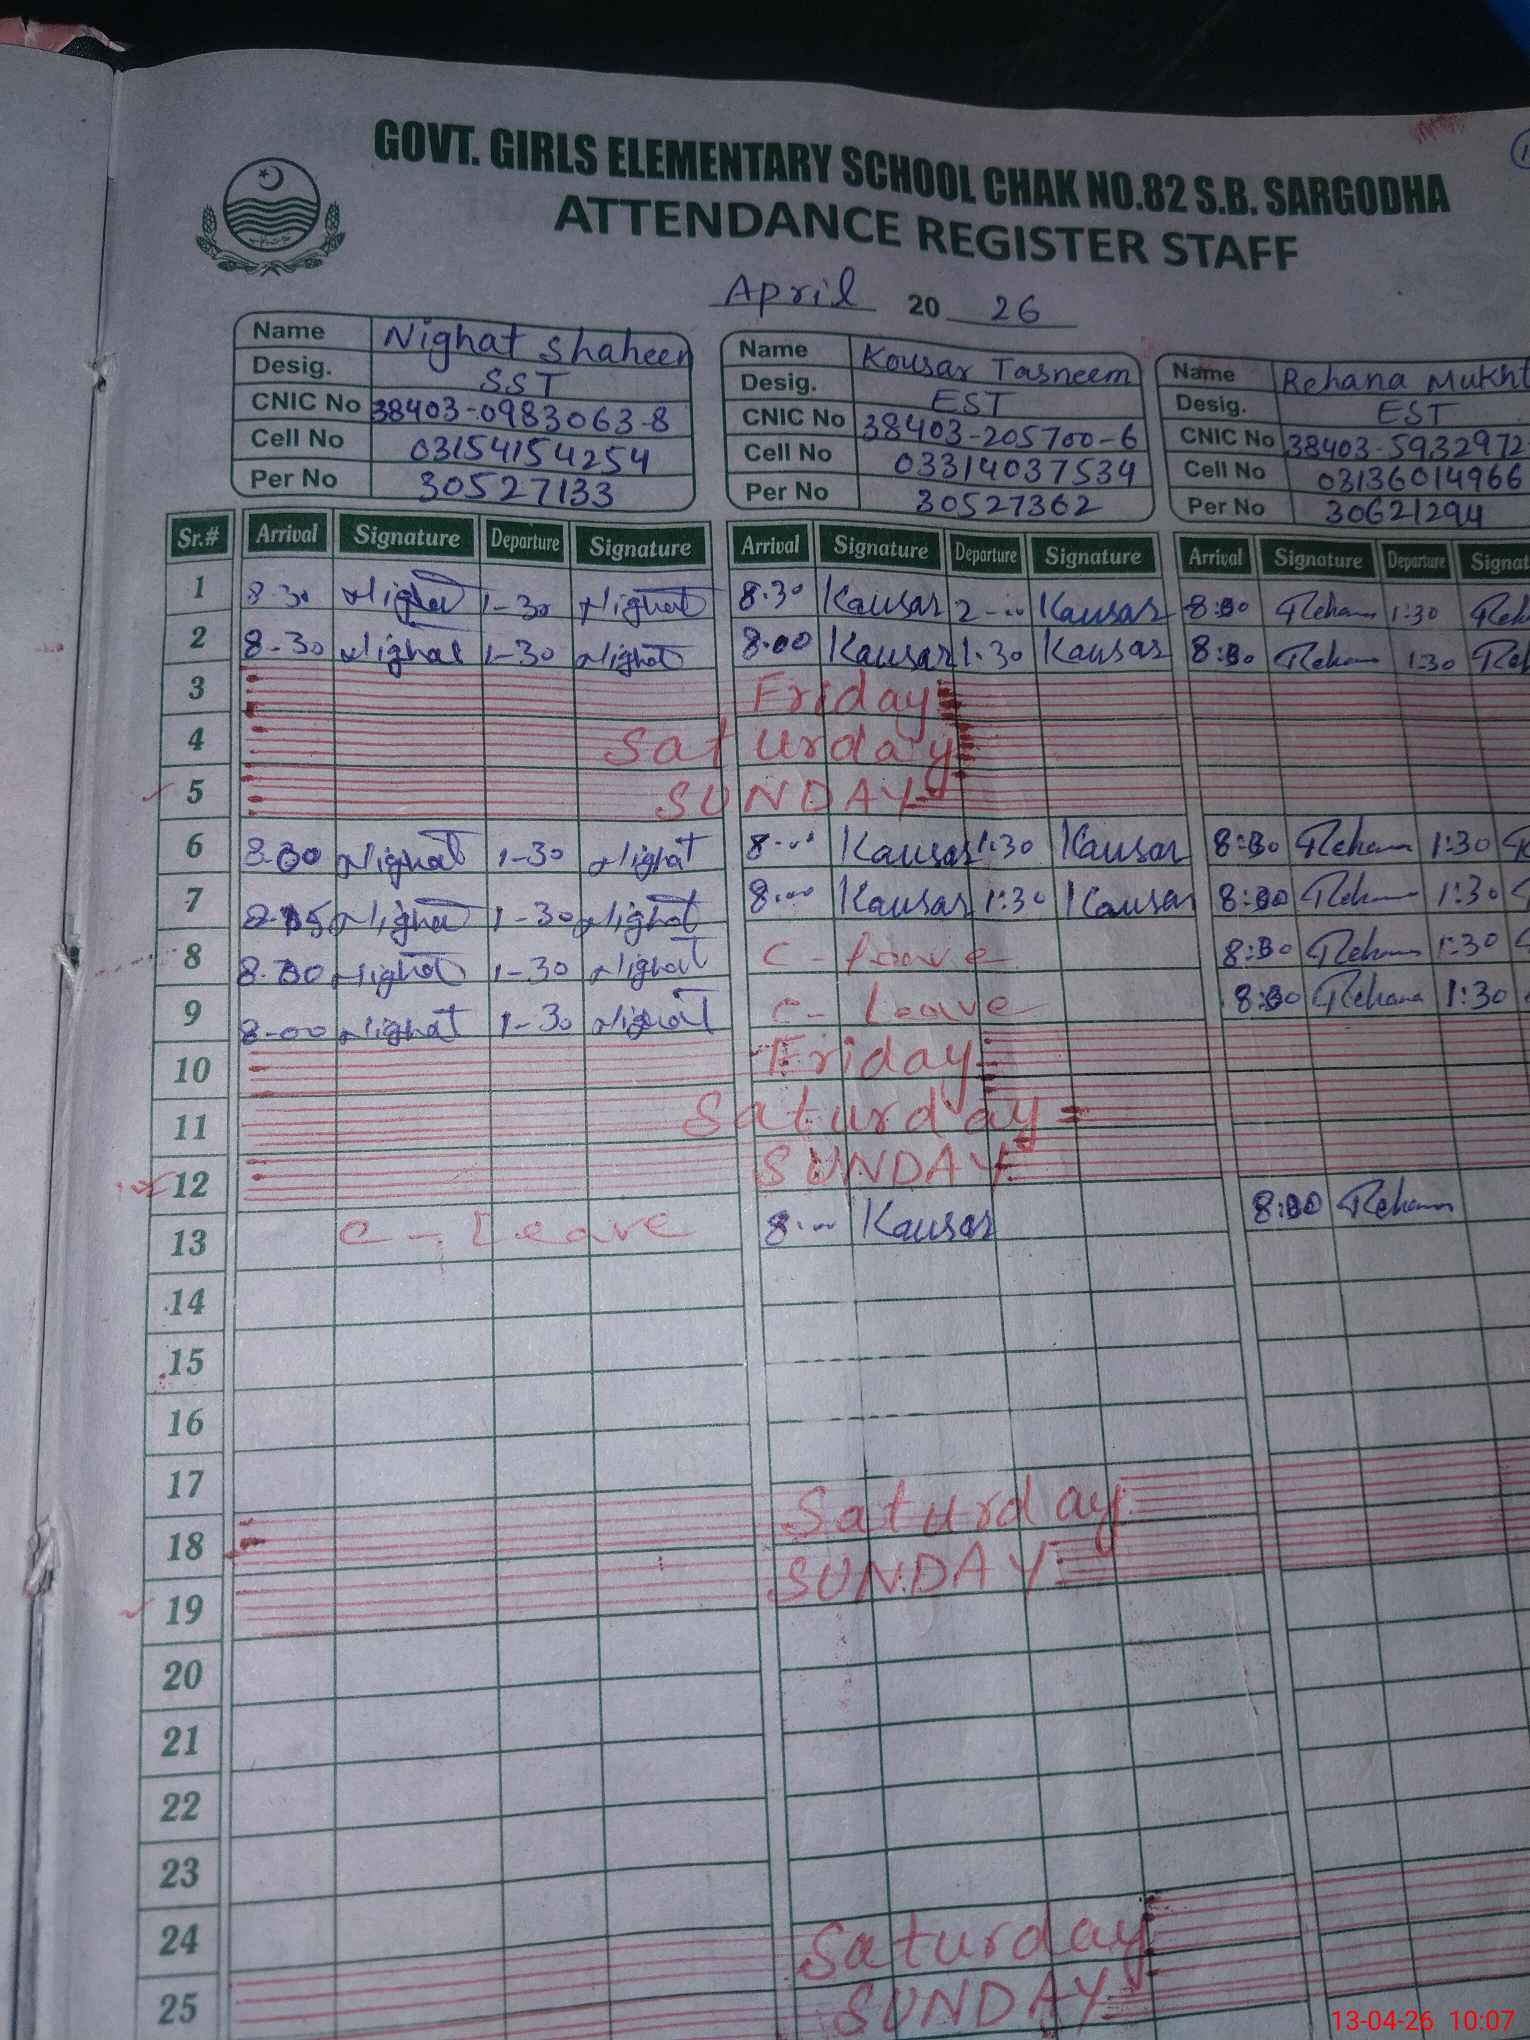 GOVT. GIRLS ELEMENTARY SCHOOL CHAK NO.82 S.B. SARGODHA
ATTENDANCE REGISTER STAFF
April 20 26
Name Nighat Shaheen Name Kousar Tasneem Name Rehana Mukht
Desig. SST Desig. EST Desig. EST
CNIC No 38403-0983063-8 CNIC No 38403-205700-6 CNIC No 38403-5932972
Cell No 03154154254 Cell No 03314037534 Cell No 03136014966
Per No 30527133 Per No 30527362 Per No 30621294
Sr.# Arrival Signature Departure Signature Arrival Signature Departure Signature Arrival Signature Departure Signat
1 8-30 Nighat 1-30 Nighat 8.30 Kausar Kausar Rehana 1:30
2 8-30 Nighat 1-30 Nighat 8.00 Kausar 1.30 Kausar Rehana 1:30
3 Friday
4 Saturday
5 SUNDAY
6 Nighat 1-30 Nighat Kausar 1:30 Kausar Rehana 1:30
7 Nighat 1-30 Nighat Kausar 1:30 Kausar Rehana 1:30
8 Nighat 1-30 Nighat C-Leave Rehana 1:30
9 8-00 Nighat 1-30 Nighat C-Leave Rehana 1:30
10 Friday
11 Saturday
12 SUNDAY
13 C-Leave Kausar Rehana
14
15
16
17
18 Saturday
19 SUNDAY
20
21
22
23
24 Saturday
25 SUNDAY
13-04-26 10:07